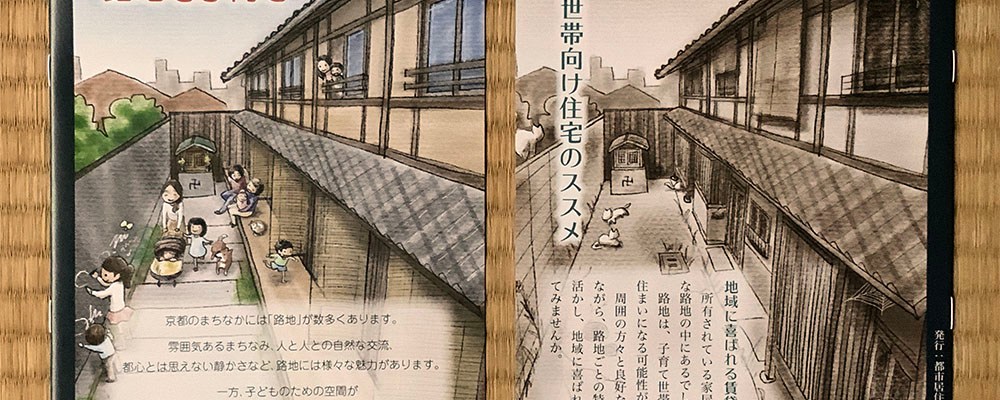 京都のまちなかには「路地」が数多くあります。
雰囲気あるまちなみ、人と人との自然な交流、
都心とは思えない静かさなど、路地には様々な魅力があります。
一方、子どものための空間が
世帯向け住宅のススメ
地域に喜ばれる賃貸
所有されている家屋
な路地の中にあるでし
路地は、子育て世帯
住まいになる可能性が
周囲の方々と良好な
ながら、路地ごとの特
活かし、地域に喜ばれ
てみませんか。
発行：都市居住
卍
卍